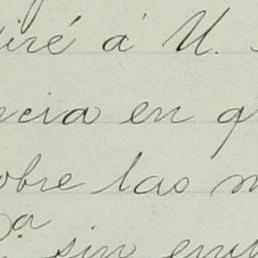 iré á U.
ncia en q
obre las m
a
sin em